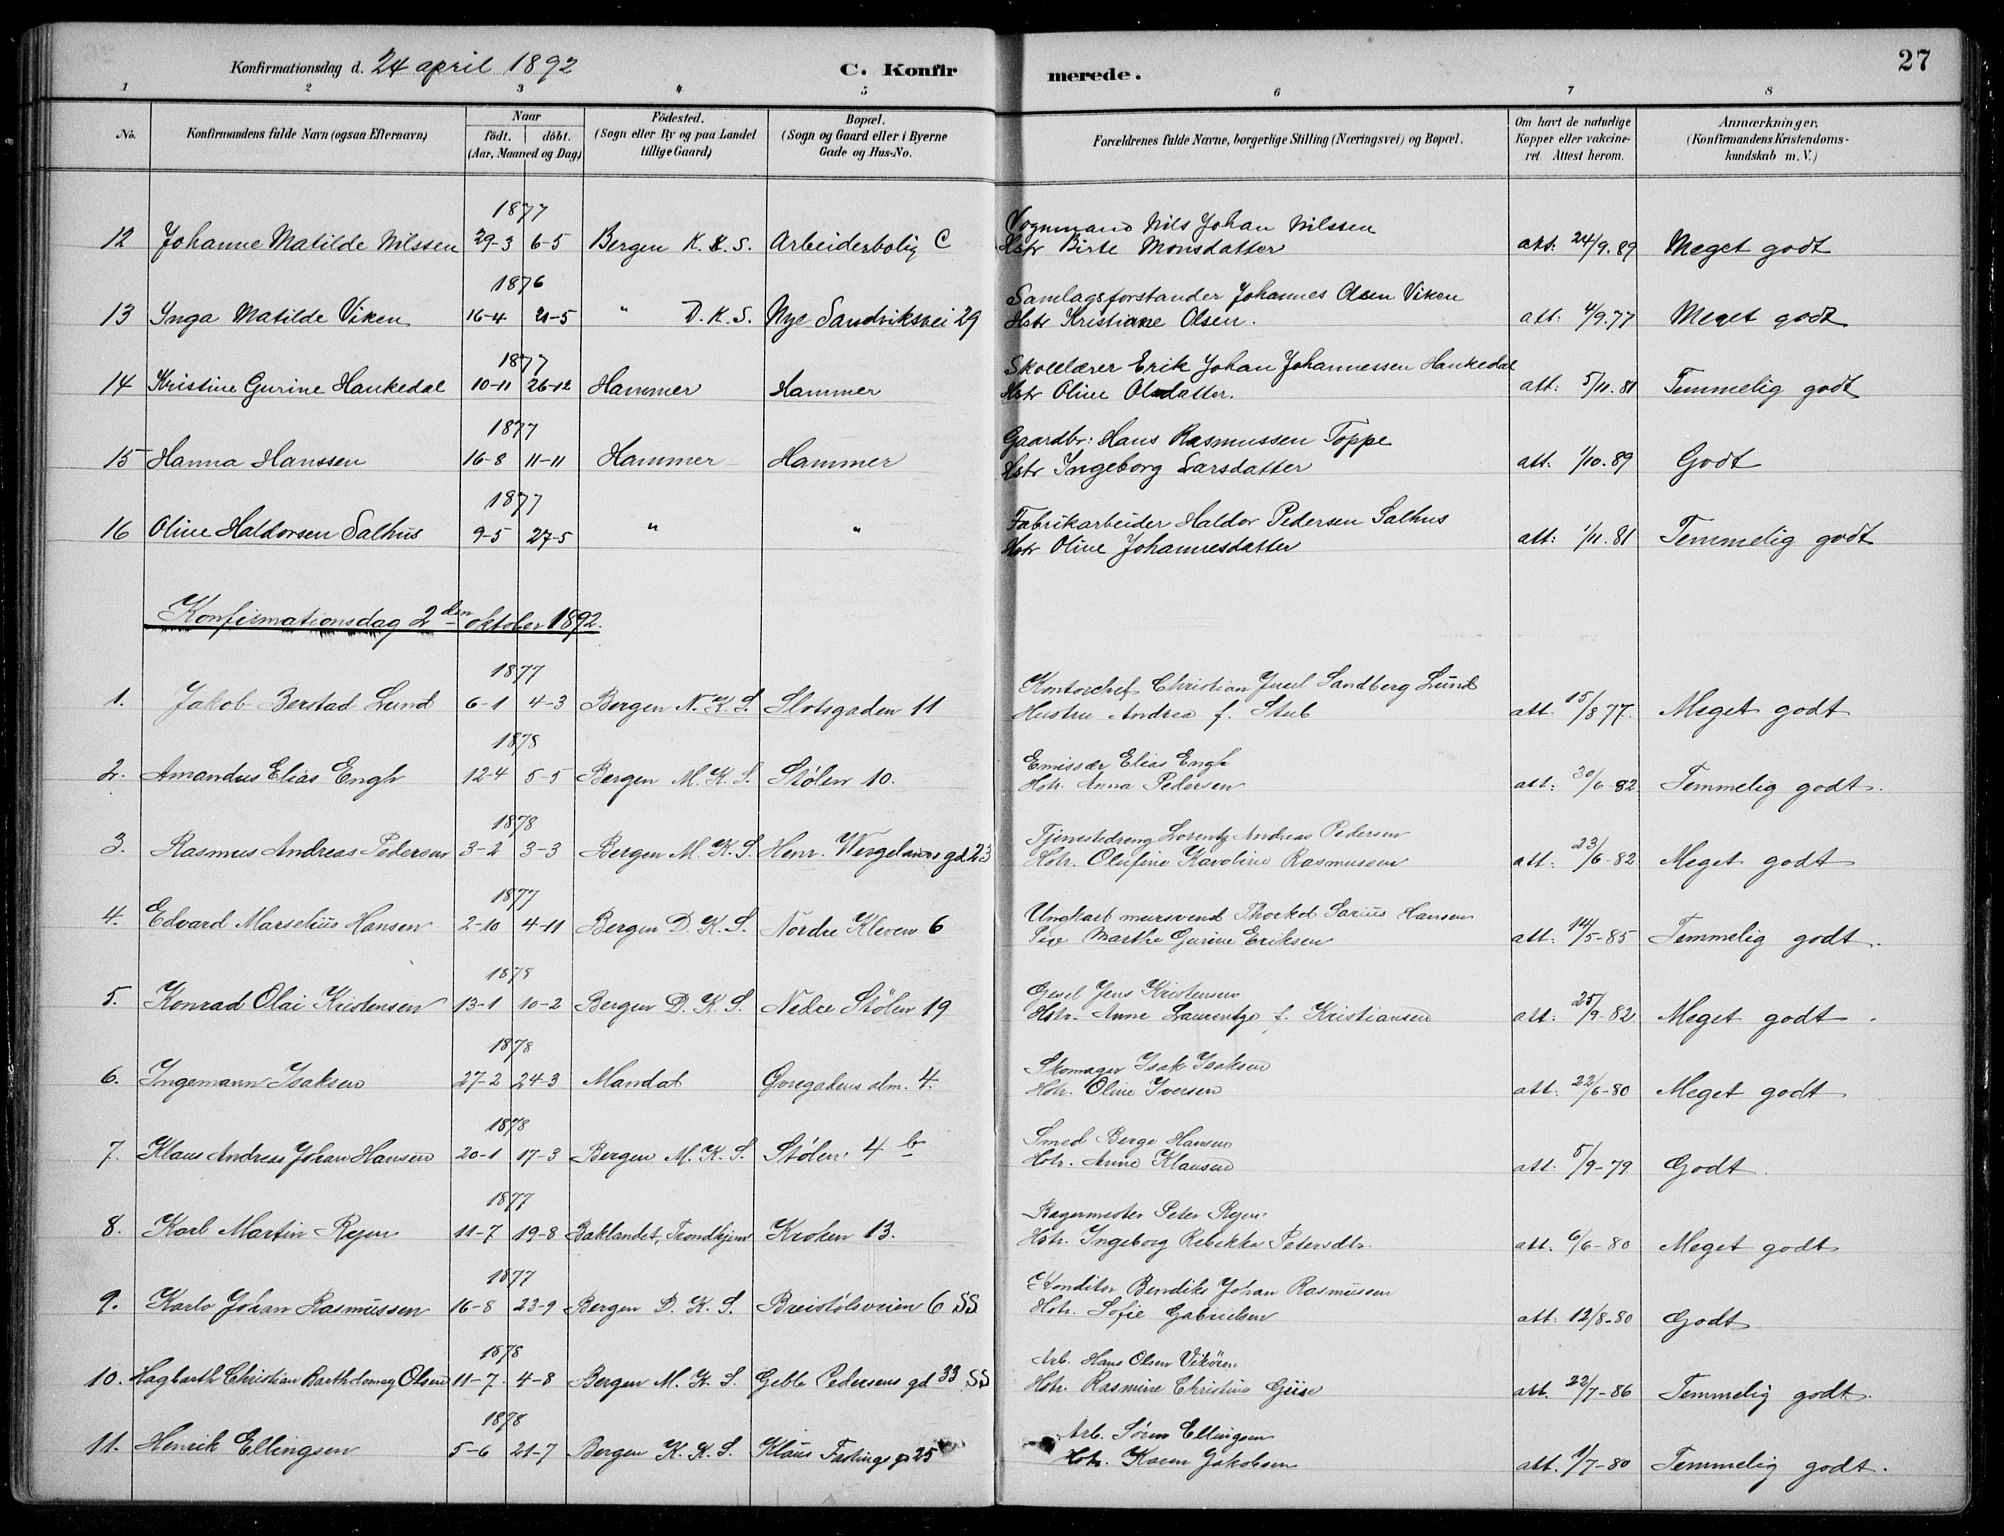 Konfirmationsdag d. 24 april 1892 C. Konfirmerede. 27
1 2 3 4 5 6 7 8
No. Konfirmandens fulde Navn (ogsaa Efternavn) Naar födt. döbt. (Aar, Maaned og Dag) Födested. (Sogn eller By og paa Landet tillige Gaard) Bopæl. (Sogn og Gaard eller i Byerne Gade og Hus-No. Forældrenes fulde Navne, borgerlige Stilling (Næringsvei) og Bopæl. Om havt de naturlige Kopper eller vakcineret. Attest herom. Anmærkninger. (Konfirmandens Kristendomskundskab m. V.)
1877
Vognmand Nils Johan Nilssen
12 Johanne Matilde Nilssen 29-3 6-5 Bergen K. K. S. Arbeiderbolig C Hstr Birte Monsdatter att: 24/9.89 Meget godt
1876
Samlagsforstander Johannes Olsen Viken
13 Inga Matilde Viken 16-4 21-5 " D.K.S. Nye Sandviksvei 29 Hstr Kristiane Olsen. att: 4/9.77 Meget godt
1877
Skolelærer Erik Johan Johannessen Haukedal
14 Kristine Gurine Haukedal 10-11 26-12 Hammer Hammer Hstr Oline Olsdatter. att: 5/11.81 Temmelig godt
1877
Gaardbr: Hans Rasmussen Toppe
15 Hanna Hanssen 16-8 11-11 Hammer Hammer Hstr Ingeborg Larsdatter att: 1/10.89 Godt
1877
Fabrikarbeider Haldor Pedersen Salhus
16 Oline Haldorsen Salhus 9-5 27-5 " " Hstr Oline Johannesdatter att: 1/11.81 Temmelig godt
Konfirmationsdag 2den oktober 1892.
1877
Kontorchef Christian Juel Sandberg Lund
1. Jakob Berstad Lund 6-1 4-3 Bergen N. K. S. Slotsgaden 11 Hustru Andrea f. Stub att. 15/8 77. Meget godt
1878
Emissær Elias Engh
2. Amandus Elias Engh 12-4 5-5 Bergen M. K. S. Stølen 10. Hstr. Anna Pedersen att: 30/6-82 Temmelig godt.
1878
Tjenestedreng Lorentz Andreas Pedersen
3. Rasmus Andreas Pedersen 3-2 3-3 Bergen M. K. S. Henr. Wergelands gd 23 Hstr. Olufine Karoline Rasmussen att: 23/6-82 Meget godt
1877
Ungkarl mursvend Thorkel Hansen
4. Edvard Marselius Hansen 2-10 4-11 Bergen D. K. S. Nordre Kleven 6 Pige Marthe Gurine Eriksen att: 14/5-85 Temmelig godt.
1878
Gesel Jens Kristensen
5. Konrad Olai Kristensen 13-1 10-2 Bergen D. K. S. Nedre Stølen 19 Hstr. Anne Laurentze f. Kristiansen att: 25/9-82 Meget godt.
1878
Skomager Isak Isaksen
6. Ingemann Isaksen 27-2 24-3 Mandal Goregadens alm. 4. Hstr. Oline Iversen att: 22/6-80 Meget godt
1878
Smed Berge Hansen
7. Klaus Andreas Johan Hansen 20-1 17-3 Bergen M. K. S. Stølen 4 b Hstr. Anne Klausen att: 5/9-79 Godt.
1877
Bagermester Peter Ryen
8. Karl Martin Ryen 11-7 19-8 Baklandet, Trondhjem Kroken 13. Hstr. Ingeborg Rebekka Petersdtr. att: 6/6-80 Meget godt
1877
Konditor Bendiks Johan Rasmussen
9. Karlo Johan Rasmussen 16-8 23-9 Bergen D. K. S. Breistølsveien 6 SS Hstr. Sofie Gabrielsen att: 12/8-80 Godt
1878
Arb. Hans Olsen Vikören
10. Hagbarth Christian Bartholomay Olsen 11-7. 4-8 Bergen M. K. S. Geble Pedersens gd 33 SS Hstr. Rasmine Christine Giise att. 22/7-86 Temmelig godt.
1878
Arb. Sören Ellingsen
11. Henrik Ellingsen 5-6 21-7 Bergen K. K. S. Klaus Fastings g 25 Hstr. Karen Jakobsen att. 1/7-80 Temmelig godt.